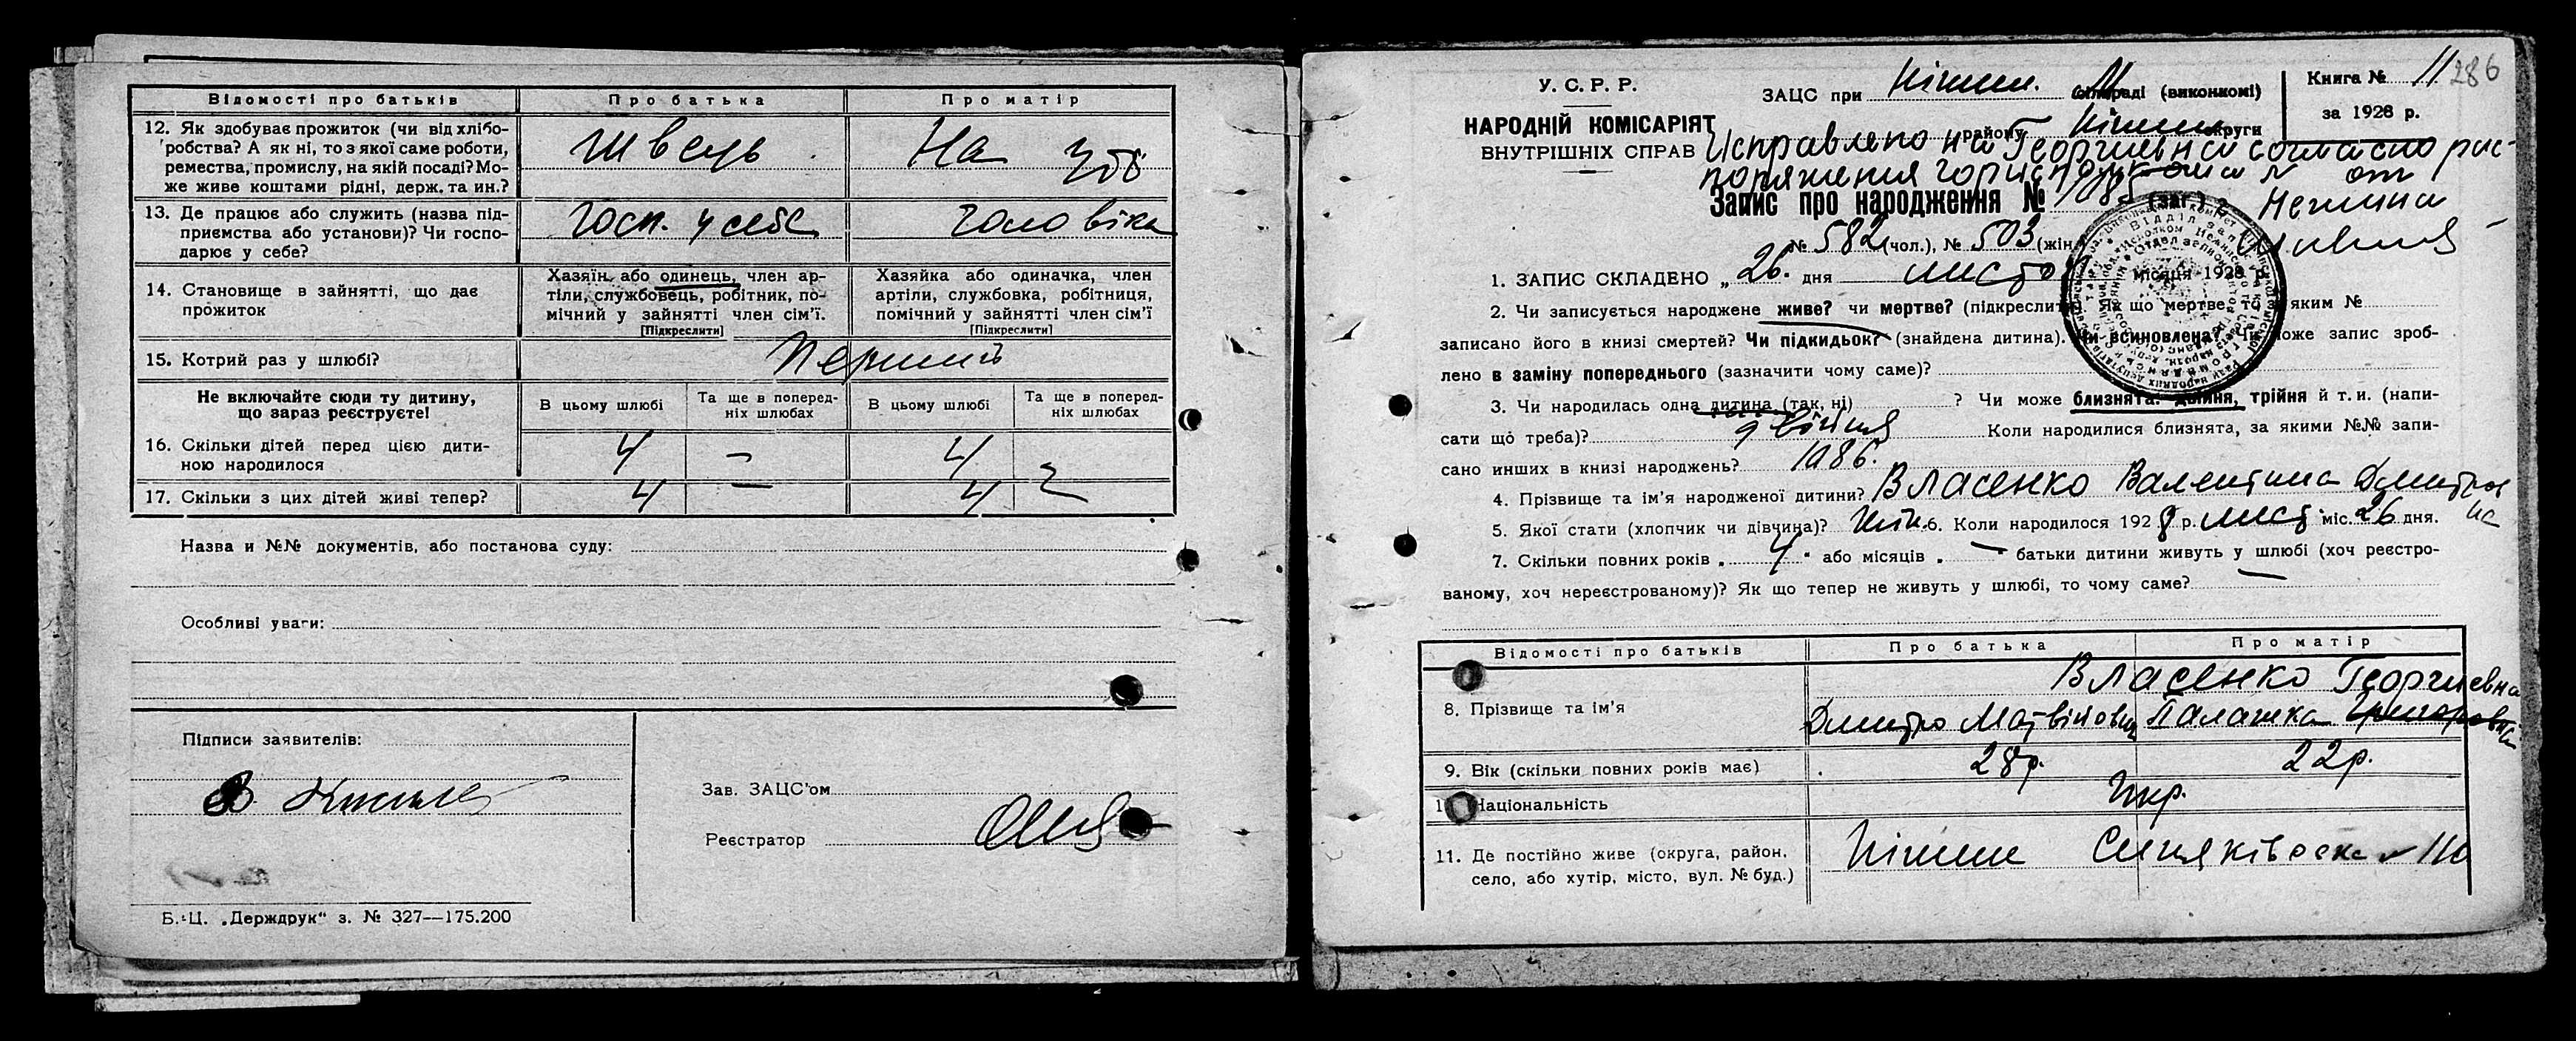 Відомості про батьків Про батька Про матір
12. Як здобуває прожиток (чи від хлібо-
робства? А як ні, то з якої саме роботи,
ремества, промислу, на якій посаді? Мо-
же живе коштами рідні, держ. та ин.?
Швець На
13. Де працює або служить (назва під-
приємства або установи)? Чи госпо-
дарює у себе?
Госп. у себе чоловіка
14. Становище в зайнятті, що дає
прожиток
Хазяїн або одинець, член ар-
тілі, службовець, робітник, по-
мічний у зайнятті член сім'ї.
[Підкреслити]
Хазяйка або одиначка, член
артілі, службовка, робітниця,
помічний у зайнятті член сім'ї
[Підкреслити]
15. Котрий раз у шлюбі?
Перший
Не включайте сюди ту дитину,
що зараз реєструєте!
В цьому шлюбі
Та ще в поперед-
ніх шлюбах
В цьому шлюбі
Та ще в поперед-
ніх шлюбах
16. Скільки дітей перед цією дити-
ною народилося
4 — 4
17. Скільки з цих дітей живі тепер?
4 — 4
Назва и №№ документів, або постанова суду:
Особливі уваги:
Підписи заявителів:
Зав. ЗАЦС'ом
Реєстратор
Б.-Ц. „Держдрук" з. № 327—175.200
286
У. С. Р. Р.
НАРОДНІЙ КОМІСАРІЯТ
ВНУТРІШНІХ СПРАВ
ЗАЦС при Ніжин. М (виконкомі)
району Ніжин округи
Книга № 11
за 1928 р.
Исправлено на Георгиевна согласно рас-
поряжения от
Нежина
Запис про народження № 1085 (заг.),
№ 582 (чол.), № 503 (жін.)
1. ЗАПИС СКЛАДЕНО „ 26. дня листоп місяця 1928 р.
2. Чи записується народжене живе? чи мертве? (підкреслити). Як що мертве, то за яким №
записано його в книзі смертей? Чи підкидьок? (знайдена дитина). Чи всиновлена? Чи може запис зроб-
лено в заміну попереднього (зазначити чому саме)?
3. Чи народилась одна дитина (так, ні) ? Чи може близнята: двійня, трійня й т. и. (напи-
сати що треба)? двійня Коли народилися близнята, за якими №№ запи-
сано инших в книзі народжень? 1086.
4. Прізвище та ім'я народженої дитини? Власенко Валентина Дмитров
на
5. Якої стати (хлопчик чи дівчина)? Жін. 6. Коли народилося 1928 р. лист. міс. 26 дня.
7. Скільки повних років „ 4 " або місяців „ — " батьки дитини живуть у шлюбі (хоч реєстро-
ваному, хоч нереєстрованому)? Як що тепер не живуть у шлюбі, то чому саме? —
Відомості про батьків Про батька Про матір
8. Прізвище та ім'я
Власенко Георгиевна
Дмитро Матвійович Палажка Григоровна
9. Вік (скільки повних років має) 28 р. 22 р.
10. Національність Укр.
11. Де постійно живе (округа, район,
село, або хутір, місто, вул. № буд.)
Ніжин Синяківська 110